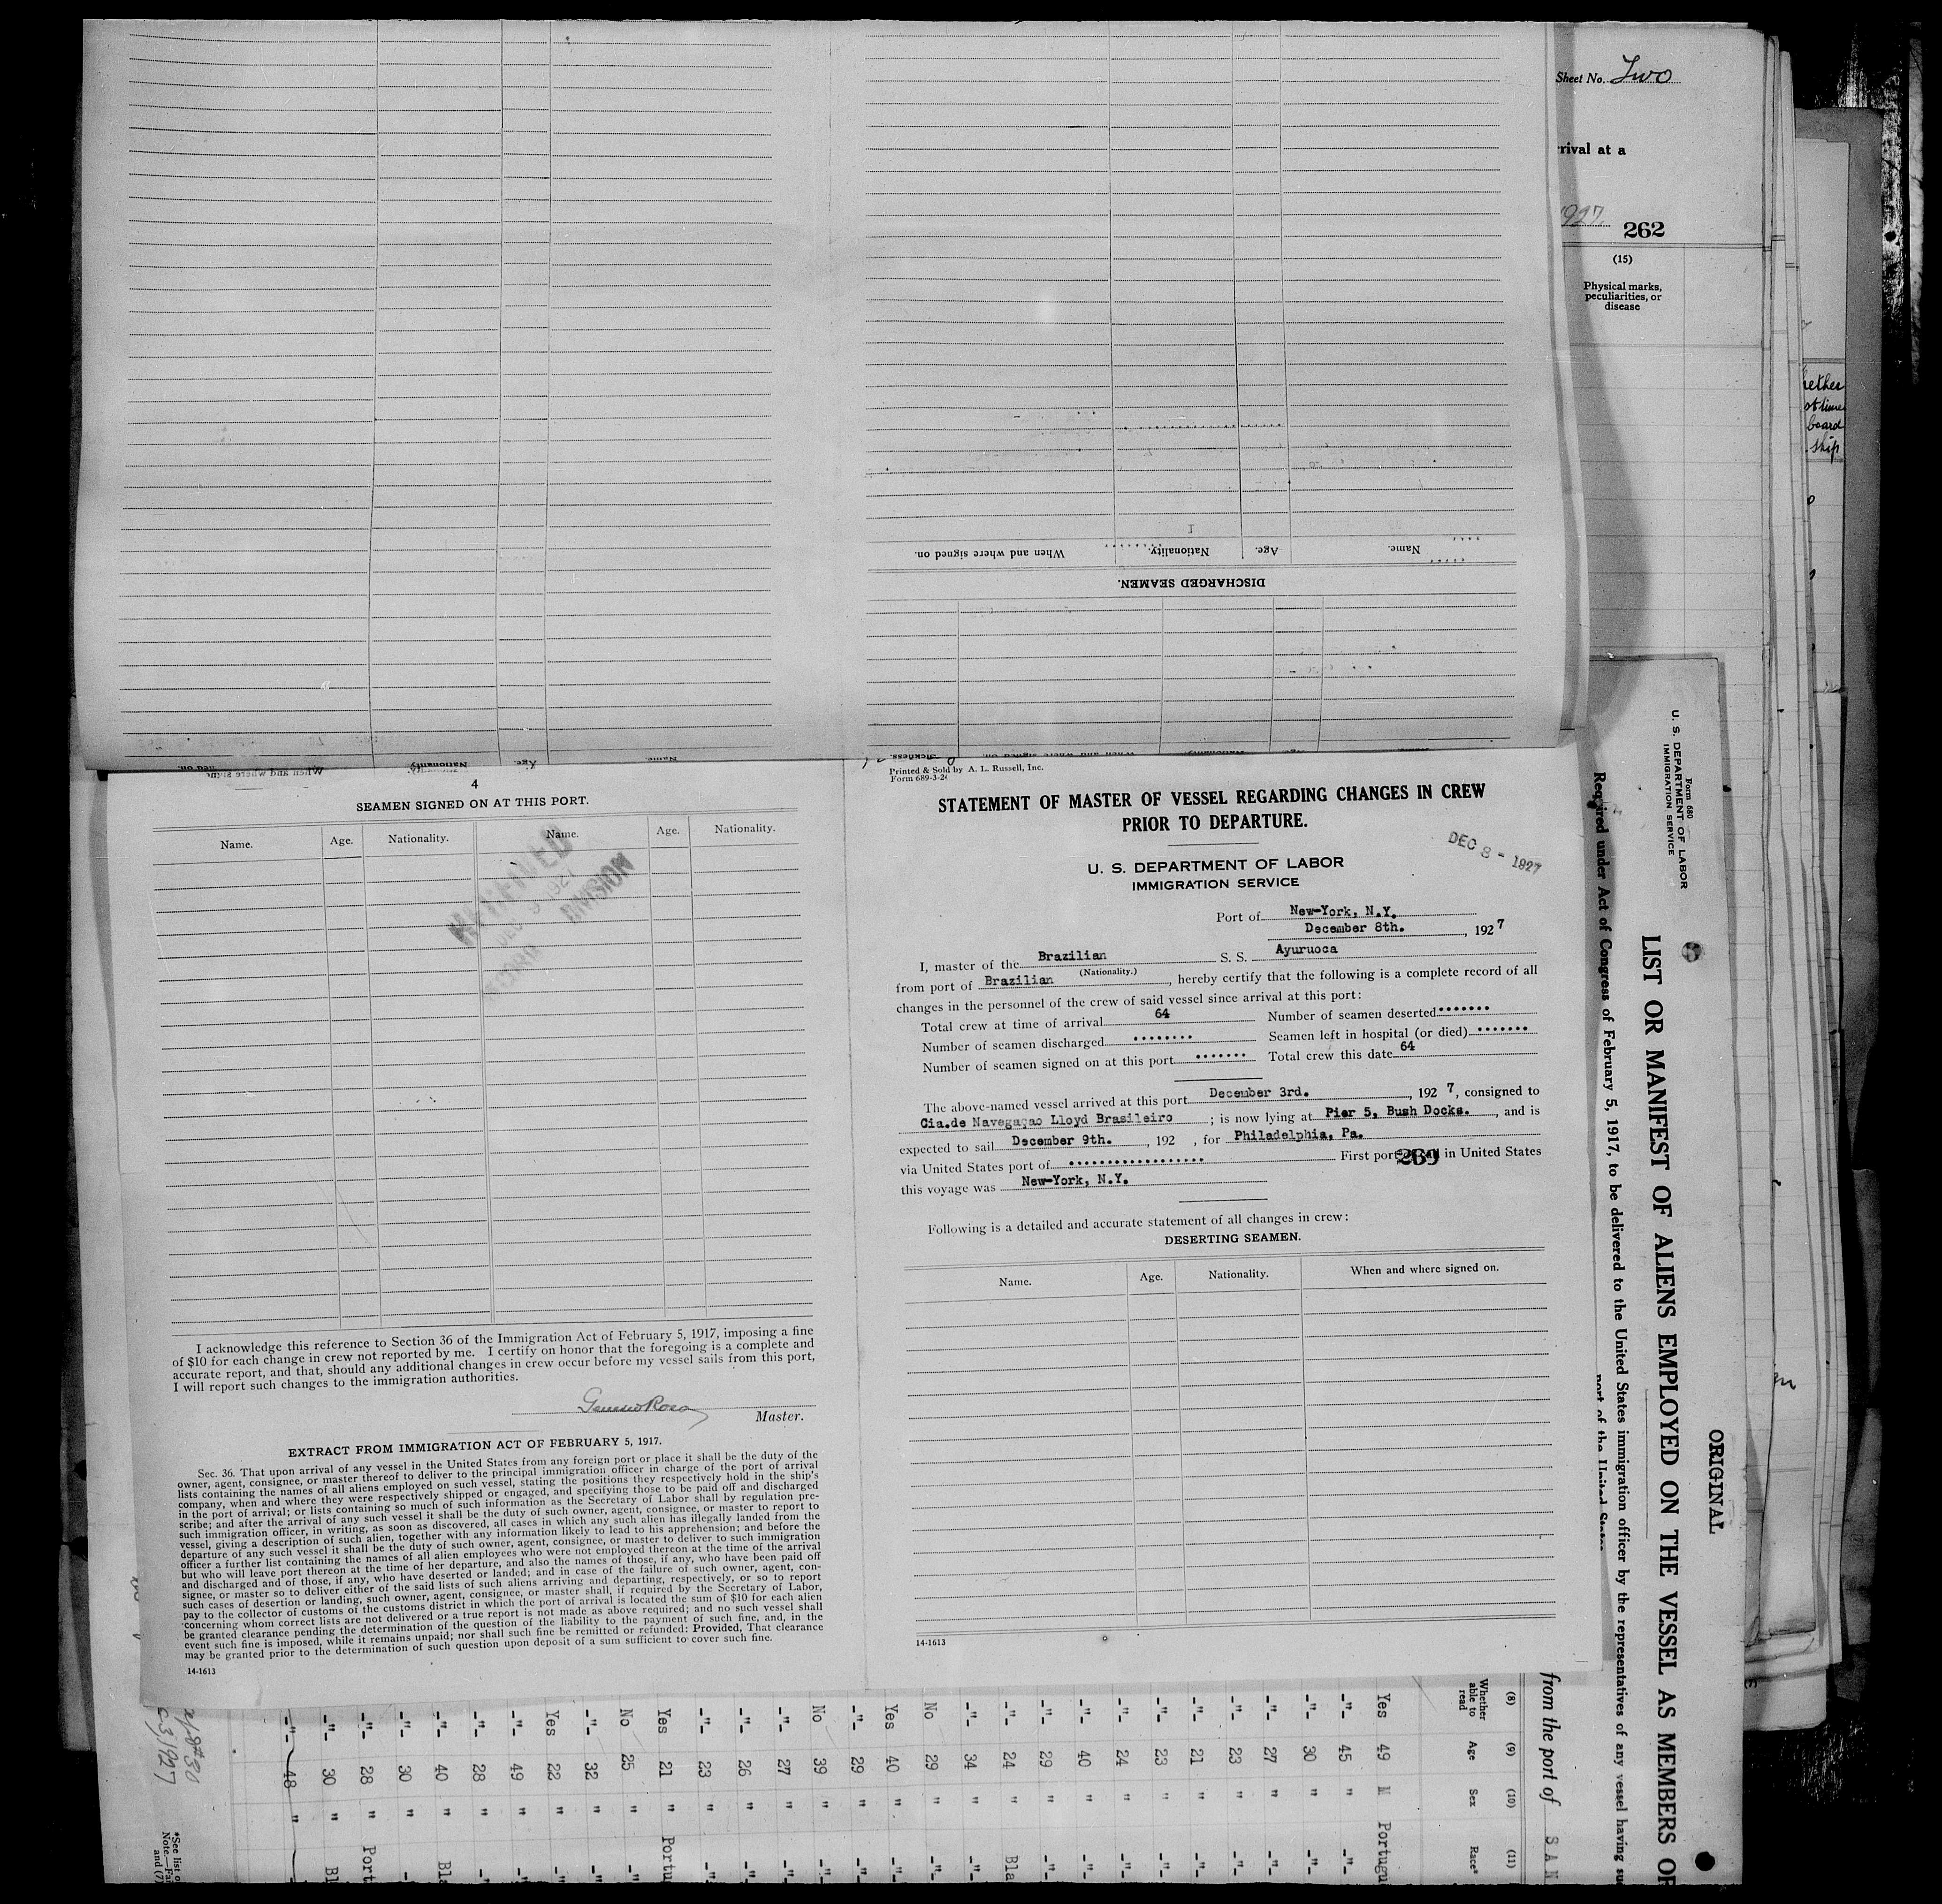 Sheet No. Two
rival at a
1927
262
(15)
Physical marks,
peculiarities, or
disease
hether
at time
board
ship
When and where signed on.
Nationality.
Age.
Name.
DISCHARGED SEAMEN.
When and where signed on.
Nationality.
Age.
Name.
Sickness.
When and where signed on.
Nationality.
Age.
Name.
4
SEAMEN SIGNED ON AT THIS PORT.
Name. Age. Nationality. Name. Age. Nationality.
RECEIVED
DEC 9 1927
RECORD DIVISION
I acknowledge this reference to Section 36 of the Immigration Act of February 5, 1917, imposing a fine
of $10 for each change in crew not reported by me. I certify on honor that the foregoing is a complete and
accurate report, and that, should any additional changes in crew occur before my vessel sails from this port,
I will report such changes to the immigration authorities.
Master.
EXTRACT FROM IMMIGRATION ACT OF FEBRUARY 5, 1917.
Sec. 36. That upon arrival of any vessel in the United States from any foreign port or place it shall be the duty of the
owner, agent, consignee, or master thereof to deliver to the principal immigration officer in charge of the port of arrival
lists containing the names of all aliens employed on such vessel, stating the positions they respectively hold in the ship's
company, when and where they were respectively shipped or engaged, and specifying those to be paid off and discharged
in the port of arrival; or lists containing so much of such information as the Secretary of Labor shall by regulation pre-
scribe; and after the arrival of any such vessel it shall be the duty of such owner, agent, consignee, or master to report to
such immigration officer, in writing, as soon as discovered, all cases in which any such alien has illegally landed from the
vessel, giving a description of such alien, together with any information likely to lead to his apprehension; and before the
departure of any such vessel it shall be the duty of such owner, agent, consignee, or master to deliver to such immigration
officer a further list containing the names of all alien employees who were not employed thereon at the time of the arrival
but who will leave port thereon at the time of her departure, and also the names of those, if any, who have been paid off
and discharged and of those, if any, who have deserted or landed; and in case of the failure of such owner, agent, con-
signee, or master so to deliver either of the said lists of such aliens arriving and departing, respectively, or so to report
such cases of desertion or landing, such owner, agent, consignee, or master shall, if required by the Secretary of Labor,
pay to the collector of customs of the customs district in which the port of arrival is located the sum of $10 for each alien
concerning whom correct lists are not delivered or a true report is not made as above required; and no such vessel shall
be granted clearance pending the determination of the question of the liability to the payment of such fine, and, in the
event such fine is imposed, while it remains unpaid; nor shall such fine be remitted or refunded: Provided, That clearance
may be granted prior to the determination of such question upon deposit of a sum sufficient to cover such fine.
14-1613
Printed & Sold by A. L. Russell, Inc.
Form 689-3-26
STATEMENT OF MASTER OF VESSEL REGARDING CHANGES IN CREW
PRIOR TO DEPARTURE.
DEC 8 - 1927
U. S. DEPARTMENT OF LABOR
IMMIGRATION SERVICE
Port of New-York, N.Y.
December 8th., 1927
I, master of the Brazilian S. S. Ayuruoca
(Nationality.)
from port of Brazilian, hereby certify that the following is a complete record of all
changes in the personnel of the crew of said vessel since arrival at this port:
Total crew at time of arrival 64 Number of seamen deserted
Number of seamen discharged Seamen left in hospital (or died)
Number of seamen signed on at this port Total crew this date 64
The above-named vessel arrived at this port December 3rd., 1927, consigned to
Cia.de Navegaçao Lloyd Brasileiro; is now lying at Pier 5, Bush Docks., and is
expected to sail December 9th., 192 , for Philadelphia, Pa.
via United States port of First port of call in United States
269
this voyage was New-York, N.Y.
Following is a detailed and accurate statement of all changes in crew:
DESERTING SEAMEN.
Name. Age. Nationality. When and where signed on.
14-1613
Form 680
U. S. DEPARTMENT OF LABOR
IMMIGRATION SERVICE
ORIGINAL
LIST OR MANIFEST OF ALIENS EMPLOYED ON THE VESSEL AS MEMBERS OF
Required under Act of Congress of February 5, 1917, to be delivered to the United States immigration officer by the representatives of any vessel having su
port of the United States
from the port of SAN
(8) (9) (10) (11)
Whether able to read Age Sex Race*
Yes 49 M Portugu
-"- 45 " -"-
-"- 30 " -"-
-"- 27 " -"-
-"- 23 " -"-
-"- 21 " -"-
-"- 23 " -"-
-"- 24 " -"-
-"- 40 " -"-
-"- 29 " -"-
-"- 24 " Bla
-"- 34 " -"-
No 29 " -"-
Yes 40 " -"-
-"- 29 " -"-
No 39 " -"-
-"- 27 " -"-
-"- 26 " -"-
-"- 23 " -"-
Yes 21 " Portu
No 25 " -"-
-"- 32 " -"-
Yes 22 " -"-
-"- 49 " -"-
-"- 28 " -"-
-"- 40 " Bla
-"- 30 " -"-
-"- 28 " Port
-"- 30 " Bl
-"- 48 " -"-
*See list o
Note.—Fai
and (7)